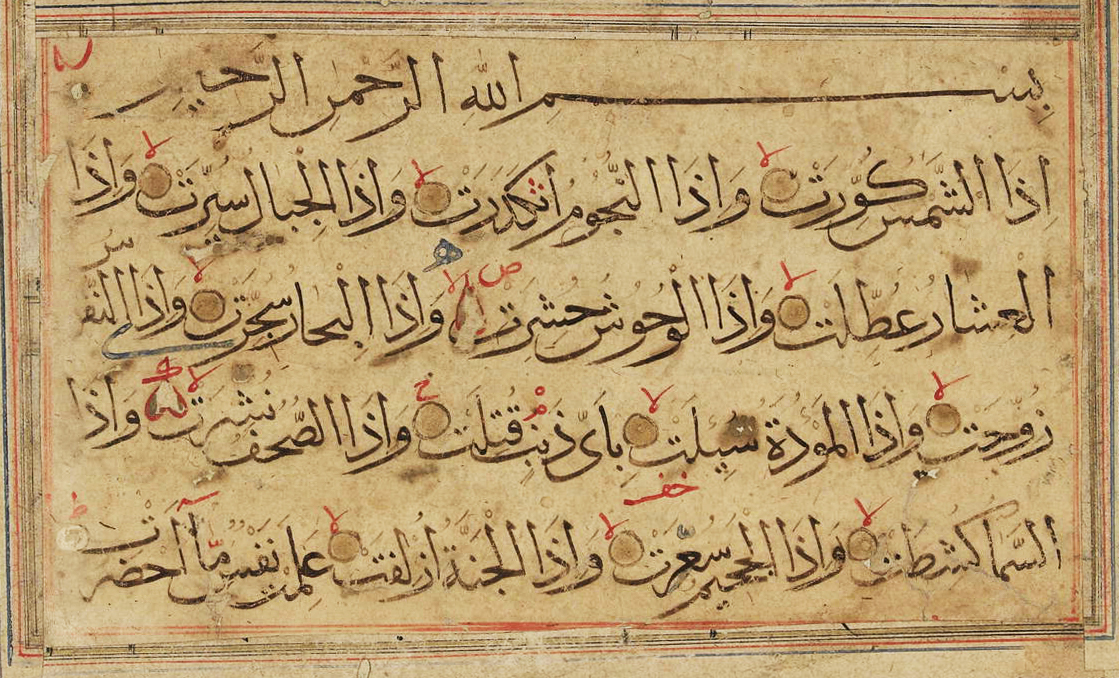 بِسْمِ اللهِ الرَّحْمٰنِ الرَّحِيمِ
اِذَا الشَّمْسُ كُوِّرَتْ وَاِذَا النُّجُومُ انْكَدَرَتْ وَاِذَا الْجِبَالُ سُيِّرَتْ وَاِذَا
الْعِشَارُ عُطِّلَتْ وَاِذَا الْوُحُوشُ حُشِرَتْ وَاِذَا الْبِحَارُ سُجِّرَتْ وَاِذَا النُّفُوسُ
زُوِّجَتْ وَاِذَا الْمَوْؤُدَةُ سُئِلَتْ بِاَيِّ ذَنْبٍ قُتِلَتْ وَاِذَا الصُّحُفُ نُشِرَتْ وَاِذَا
السَّمَاءُ كُشِطَتْ وَاِذَا الْجَحِيمُ سُعِّرَتْ وَاِذَا الْجَنَّةُ اُزْلِفَتْ عَلِمَتْ نَفْسٌ مَّا اَحْضَرَتْ